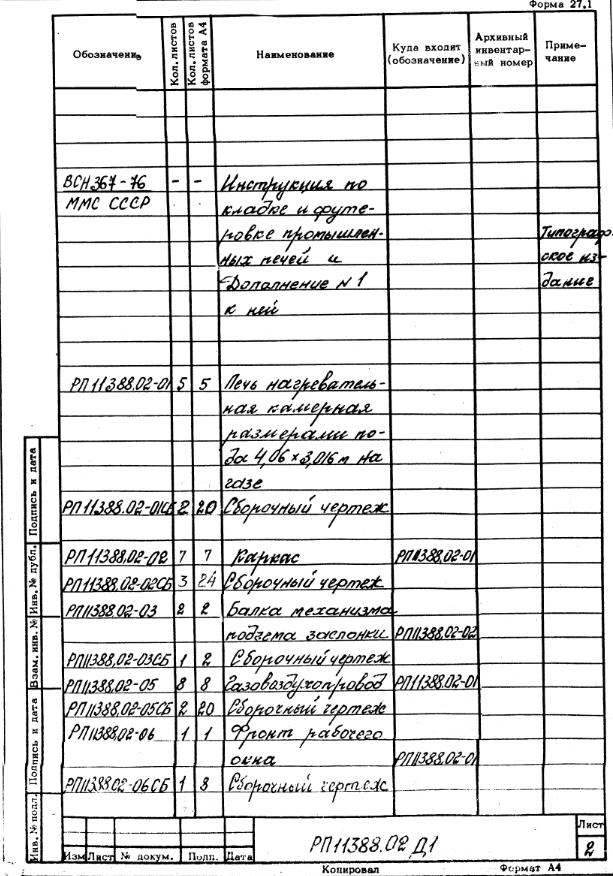 Форма 27.1
Обозначение Кол. листов Кол. листов формата А4 Наименование Куда входит (обозначение) Архивный инвентарный номер Примечание
ВСН 367-76 - - Инструкция по
ММС СССР кладке и футе-
ровке промышлен- Типограф-
ных печей и ское из-
Дополнение №1 дание
к ней
РП11388.02-01 5 5 Печь нагреватель-
ная камерная
размерами по-
да 4,06 × 3,016 м на
газе
РП11388.02-01СБ 2 20 Сборочный чертеж
РП11388.02-02 7 7 Каркас РП11388.02-01
РП11388.02-02СБ 3 24 Сборочный чертеж
РП11388.02-03 2 2 Балка механизма
подъема заслонки РП11388.02-02
РП11388.02-03СБ 1 2 Сборочный чертеж
РП11388.02-05 8 8 Газовоздухопровод РП11388.02-01
РП11388.02-05СБ 2 20 Сборочный чертеж
РП11388.02-06 1 1 Фронт рабочего
окна РП11388.02-01
РП11388.02-06СБ 1 8 Сборочный чертеж
Подпись и дата
Инв. № дубл.
Взам. инв. №
Подпись и дата
Инв. № подл.
РП11388.02 Д1
Лист
2
Изм Лист № докум. Подп. Дата
Копировал Формат А4